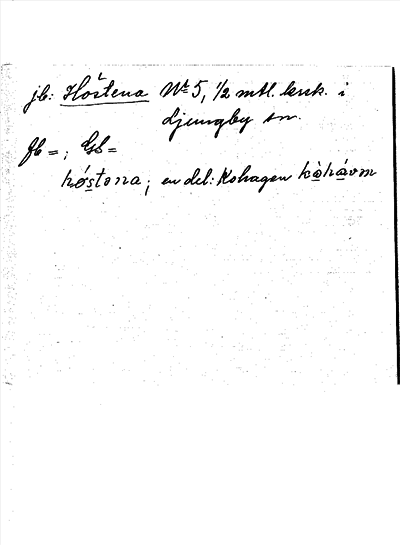 jb: Hóstena Nº 5, 1/2 mtl. krsk. i
Ljungby sn.
Jb =; Gb =
hóstona; en del: Kohagen kòhávm